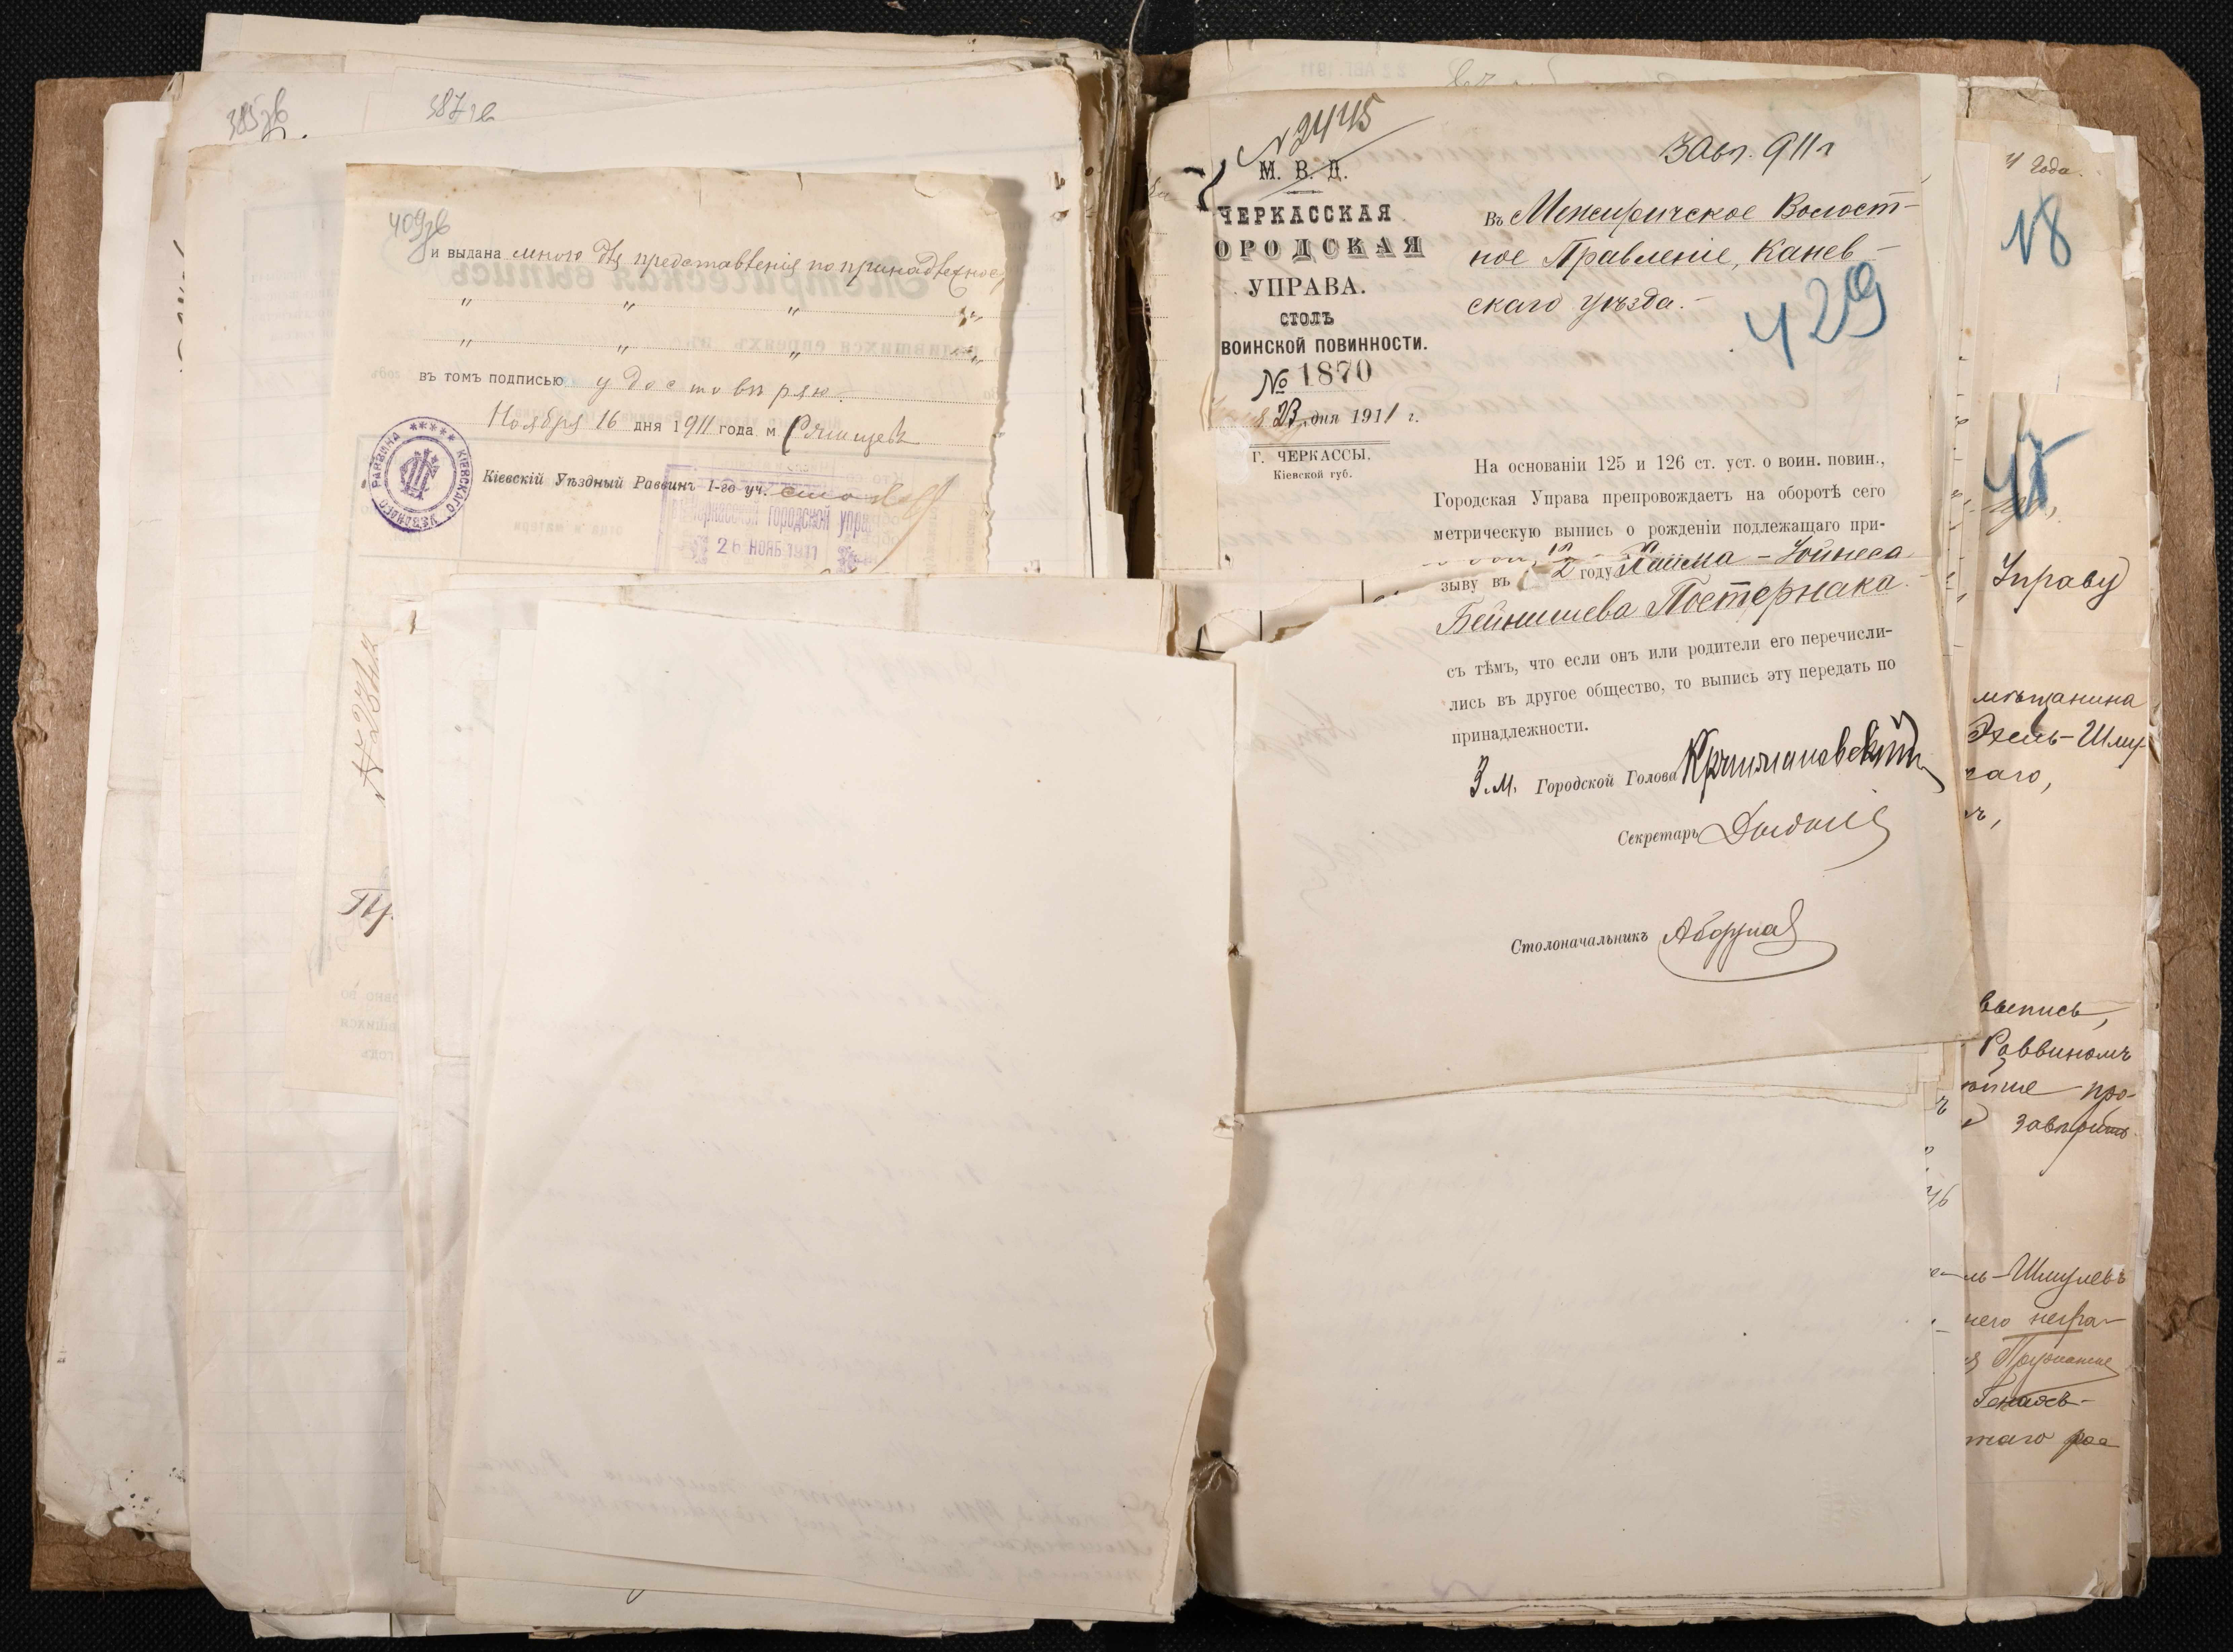 385 зв
387 зв
409 зв
и выдана мною для представленія по принадлежнос
" " " "
" " " "
въ томъ подписью удостовѣряю.
Ноября 16 дня 1911 года м. Ржищевъ
РАВВИНА КІЕВСКАГО УѢЗДНАГО
Кіевскій Уѣздный Раввинъ 1-го уч.
Черкасской городской упра
26 НОЯБ 1911
N 2445
М. В. Д.
ЧЕРКАССКАЯ
ОРОДСКАЯ
УПРАВА.
СТОЛЪ
ВОИНСКОЙ ПОВИННОСТИ.
№ 1870
23 дня 1911 г.
Г. ЧЕРКАССЫ,
Кіевской губ.
3 Авг. 911 г
Въ Межиричское Волост-
ное Правленіе, Канев-
скаго уѣзда.-
429
На основаніи 125 и 126 ст. уст. о воин. повин.,
Городская Управа препровождаетъ на оборотѣ сего
метрическую выпись о рожденіи подлежащаго при-
зыву въ году Хаима-Іойнеса
Бейнишева Постернака.-
съ тѣмъ, что если онъ или родители его перечисли-
лись въ другое общество, то выпись эту передать по
принадлежности.
З.м. Городской Голова
Секретарь
Столоначальникъ
года.
18
Управу
мѣщанина
Эхель-Шму-
гаго,
выпись,
Раввиномъ
про-
завѣрить
ль-Шмулевъ
него негра-
маго рос